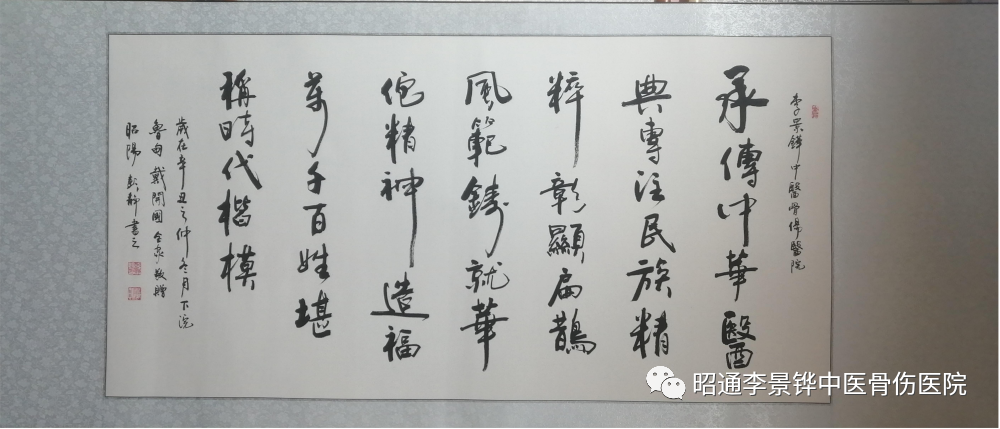 李景鏵中醫骨傷醫院
承傳中華醫
典專注民族精
粹 彰顯扁鵲
風範鑄就華
佗精神 造福
萬千百姓堪
稱時代楷模
歲在辛丑之仲冬月下浣
魯甸 戴開國 全家敬贈
昭陽 書之
昭通李景铧中医骨伤医院